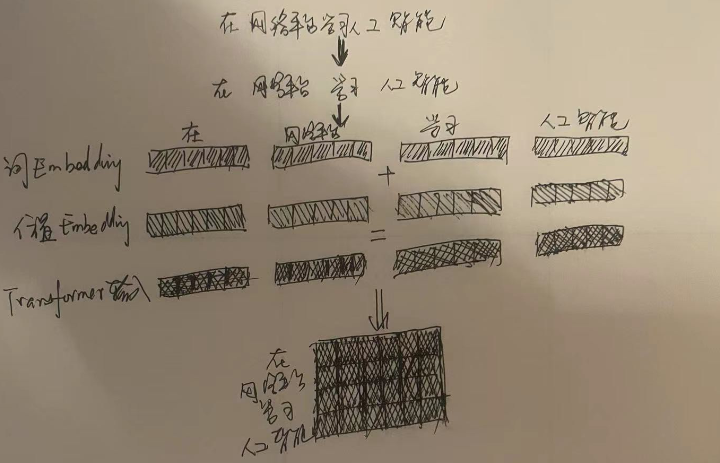 在网络平台学习人工智能
在 网络平台 学习 人工智能
在 网络平台 学习 人工智能
词Embedding
+
位置Embedding
=
Transformer输入
在
网络平台
学习
人工智能